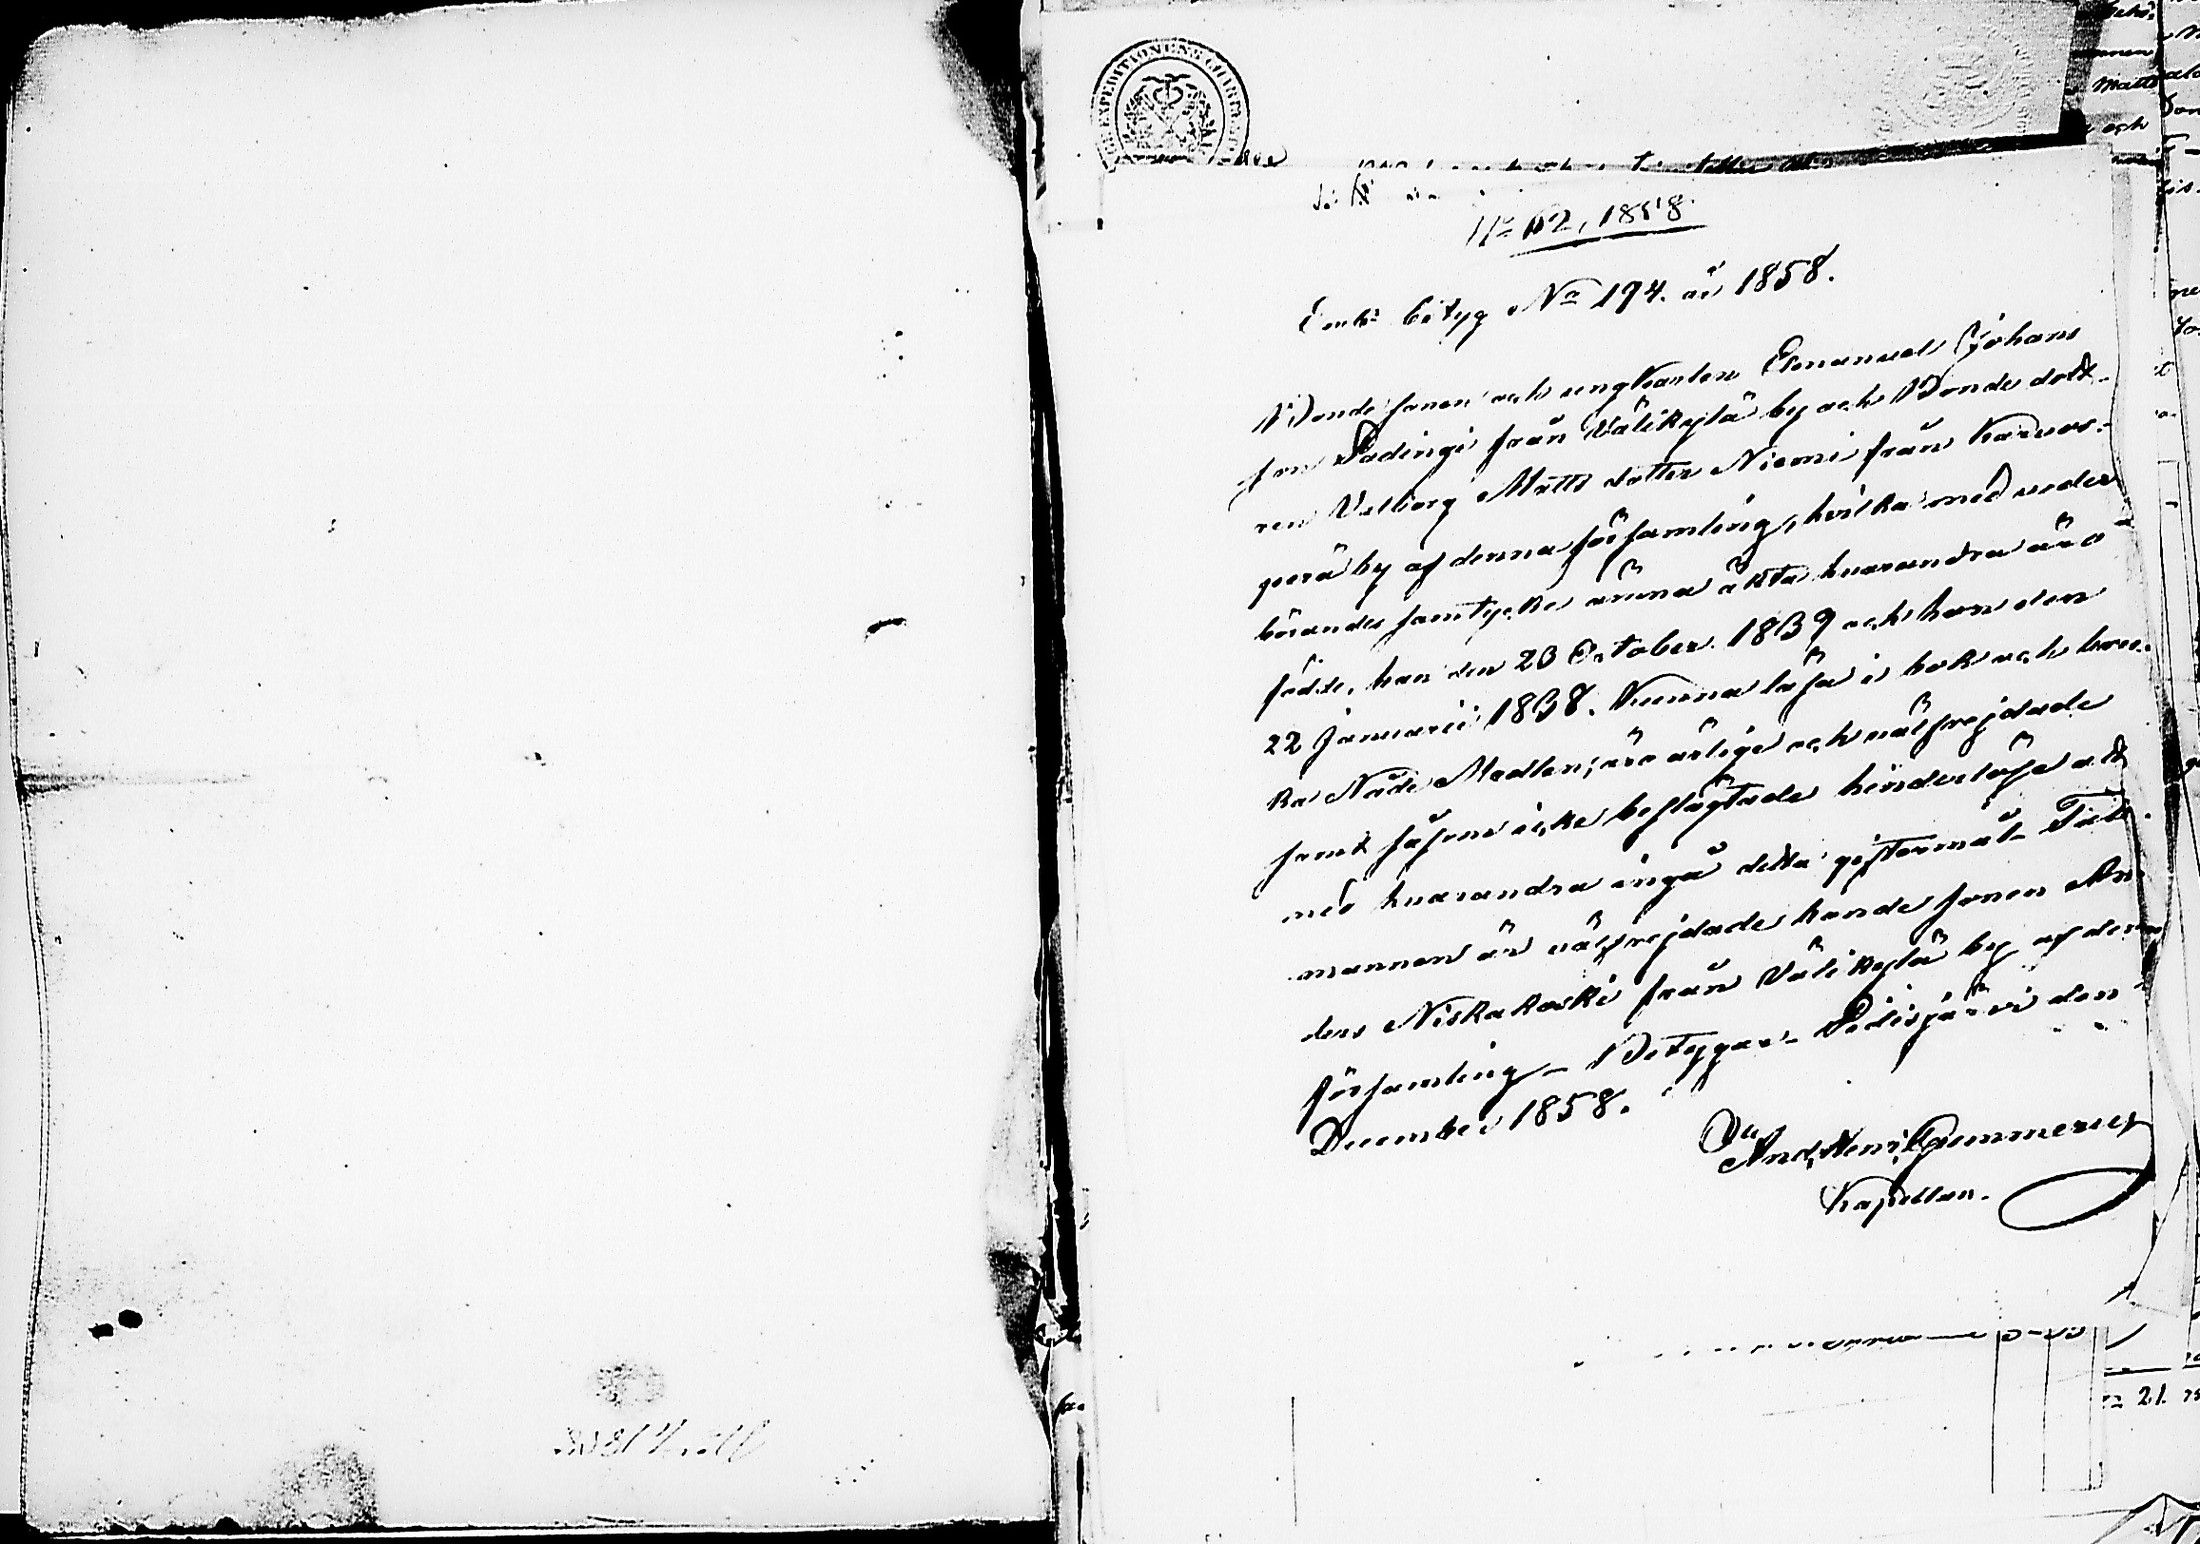 No 112, 1858.
Emb: betyg No 174. år 1858.
Bonde sonen och ungkarlen Emanuel Johans
son Padingi från Välikylä by och Bonde dott-
ren Valborg Matts dotter Niemi från Karvos-
perä by af denna församling, hvilka med veder
börandes samtycke ärna äkta hvarandra äro
födde, han den 23 October 1839 och hon den
22 Januarii 1838. Kunna läsa i bok och bru-
ka Nåde Medlen; äro ärlige och välfrejdade
samt såsom icke beslägtade hinderlöse att
med hvarandra ingå detta giftermål. Tals-
mannen är välfrejdade bonde sonen An-
ders Niskakoski från Välikylä by af denna
församling. Betygar. Pidisjärvi den
December 1858.
And, Henr, Gummerus
Kapellan.
21.